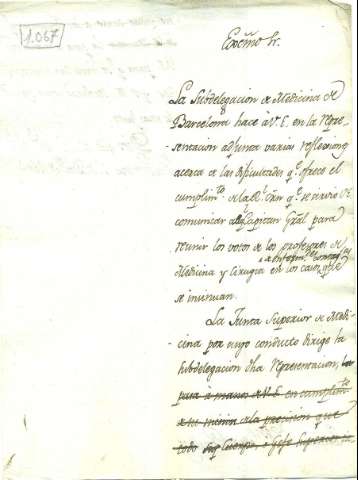 1.067
Excmo Sr.
La Subdelegacion de Medicina de
Barcelona hace à V. E. en la repre-
sentacion adjunta varias reflexiones
acerca de las dificultades q.e ofrece el
cumplim.to de la Rl. Orn q.e se sirvió V. E.
comunicar al Capitan Gral para
reunir los votos de los profesores de
Medicina y Cirugia en los casos que
se insinuan.
La Junta Superior de Medi-
cina por cuyo conducto dirige la
Subdelegacion dha representacion, la
pasa à manos de V. E. en cumplim.to
de la precision que
todo Cuerpo, ò Gefe superior